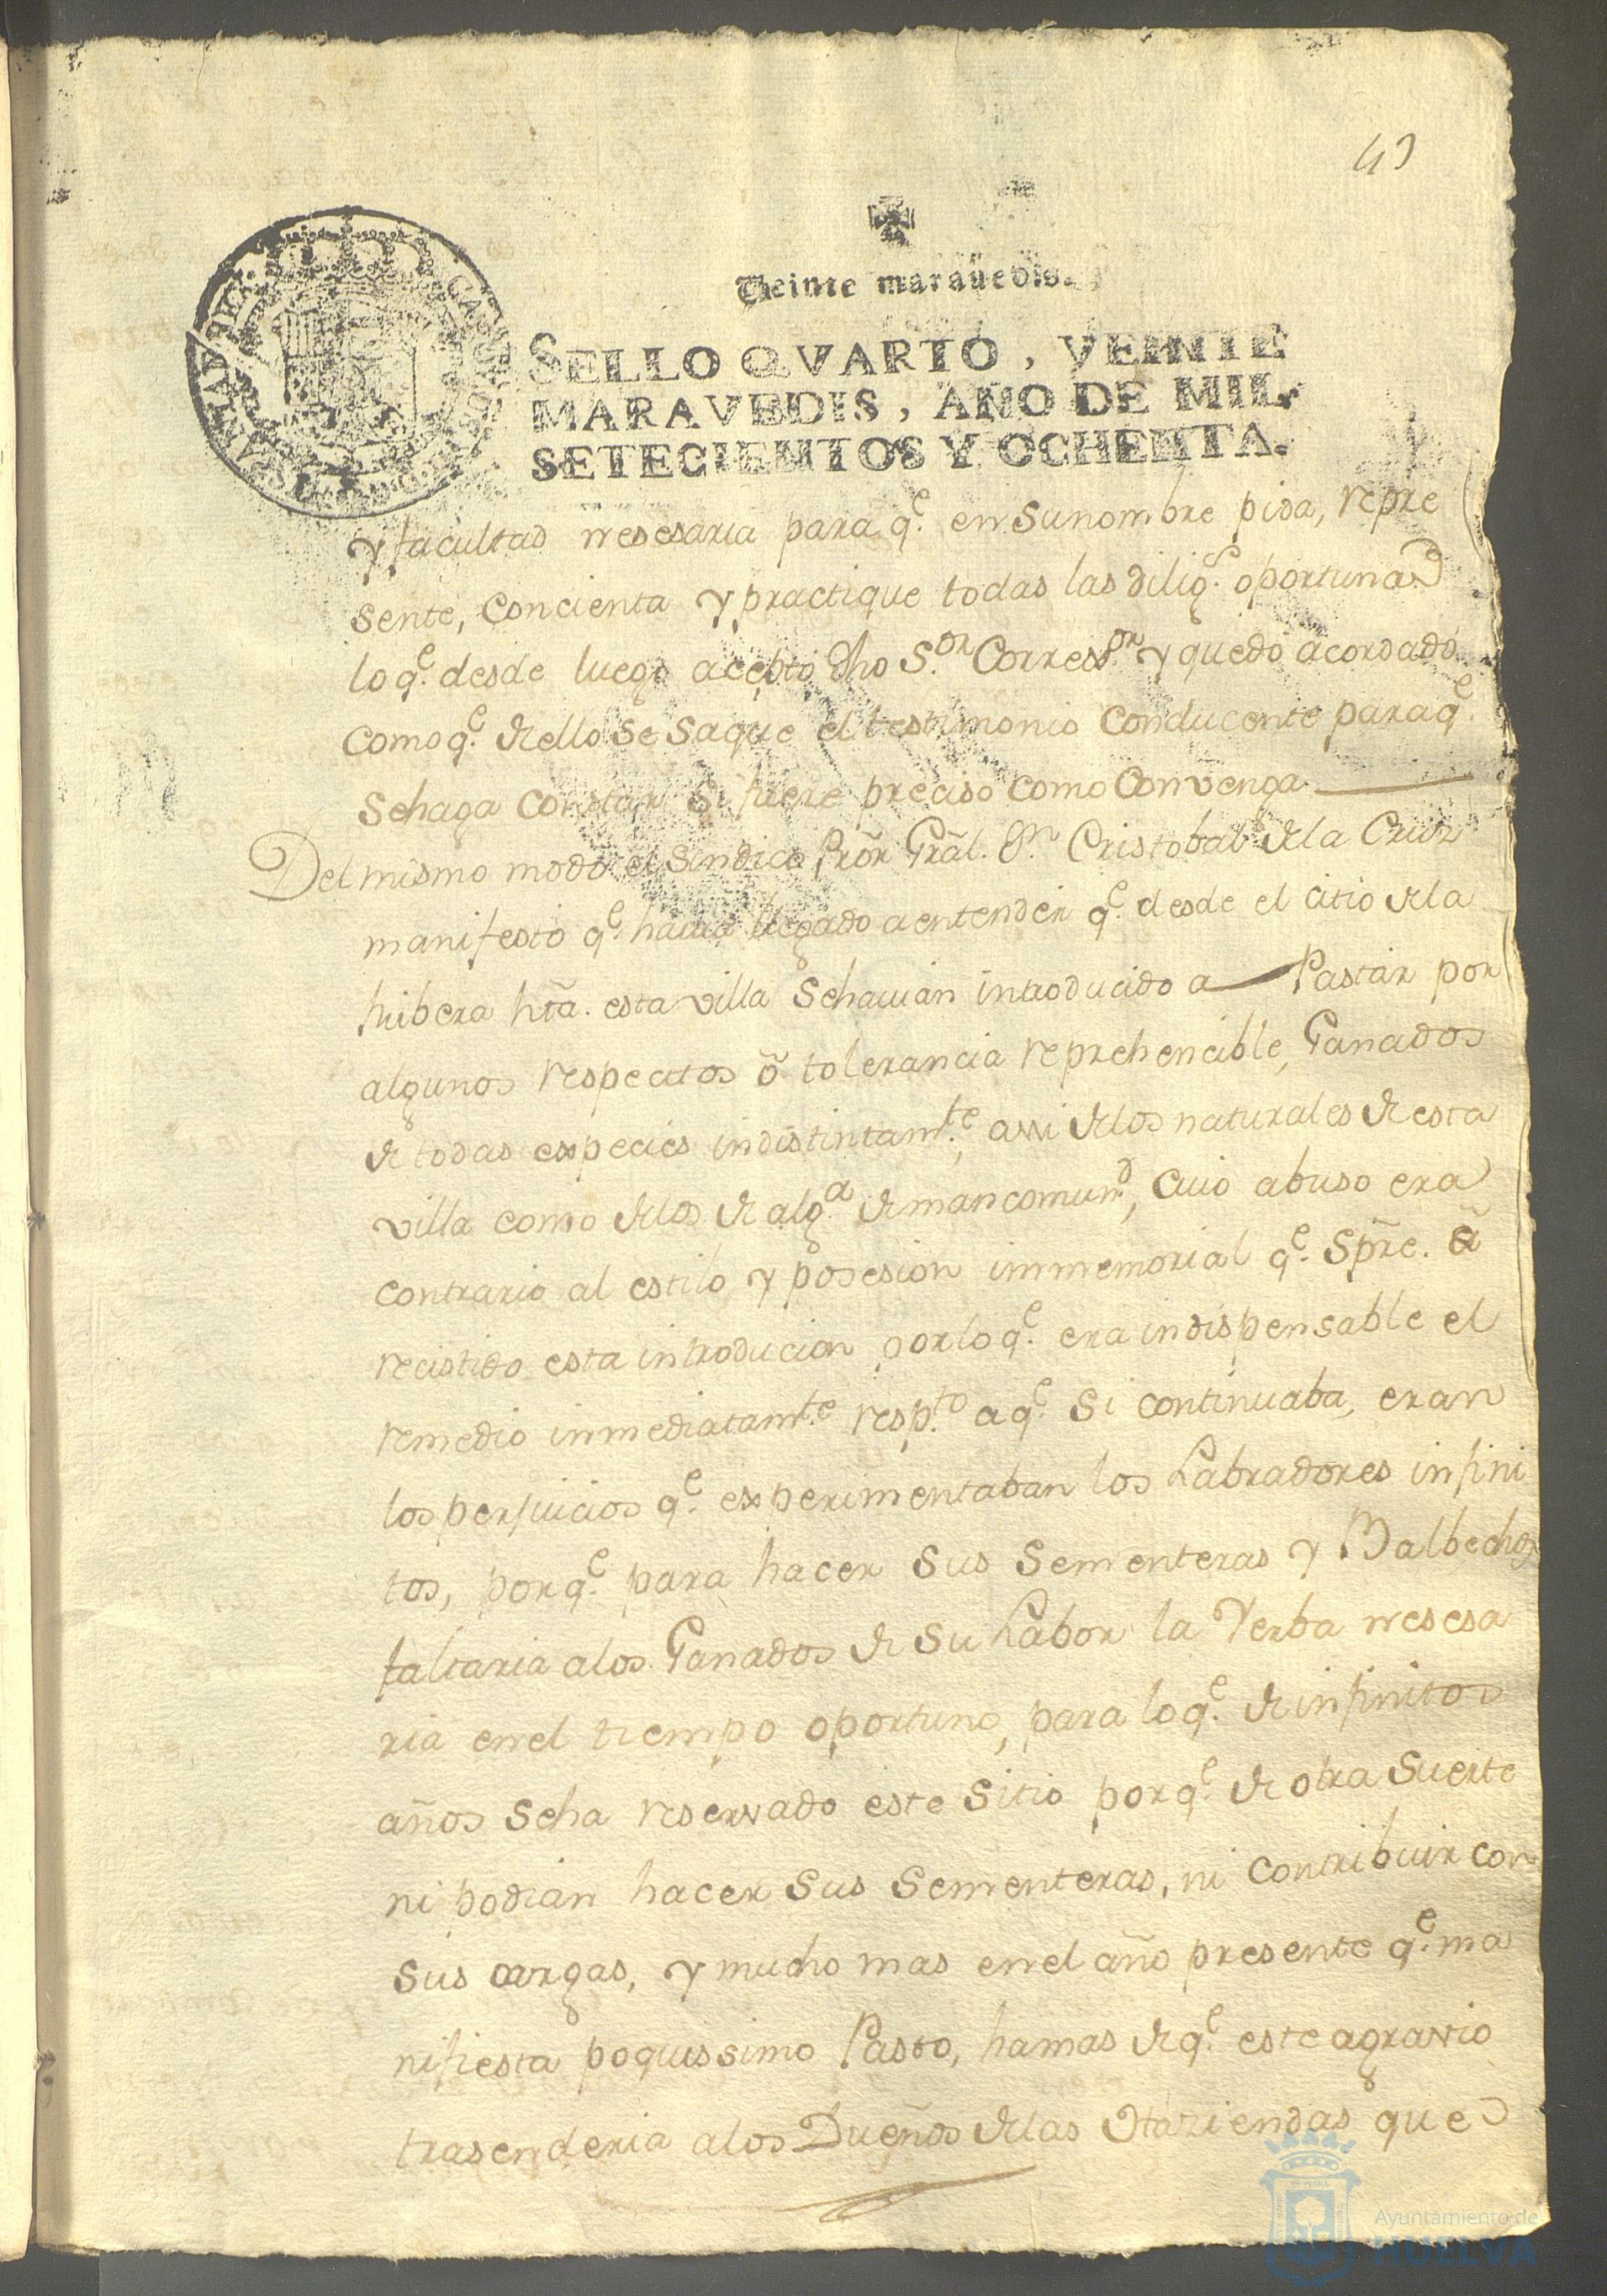 43
Veinte maravedis.
SELLO QVARTO, VEINTE
MARAVEDIS, AÑO DE MIL
SETECIENTOS Y OCHENTA.
y facultad nesesaria para q.e en su nombre pida, repre
sente, concienta y practique todas las dilig.s oportunas
lo q.e desde luego aceptó dho S.or Corregor y quedó acordado
como q.e de ello se saque el testimonio conducente para q.e
se haga constar si fuere preciso como Convenga
Del mismo modo el sindico Prõr Grãl. Dn Cristobal de la Cruz
manifestó q.e havia llegado a entender q.e desde el citio de la
hribera hta. esta villa se havian introducido a Pastar por
algunos respectos õ tolerancia reprehencible, Ganados
de todas especies indistintam.te, assi de los naturales de esta
villa como de los de alg.a de mancomund, cuio abuso era
contrario al estilo y posesion immemorial q.e Spre. ã
recistido esta introducion por lo q.e era indispensable el
remedio inmediatam.te resp.to a q.e si continuaba, eran
los perjuicios q.e experimentaban los Labradores infini
tos, porq.e para hacer sus sementeras y Balbechos
faltaria a los Ganados de su Labor la Yerba nesesa
ria en el tiempo oportuno, para lo q.e de infinitos
años se ha reservado este sitio porq.e de otra suerte
ni podian hacer sus sementeras, ni contribuir con
sus cargas, y mucho mas en el año presente q.e ma
nifiesta poquissimo Pasto, hamas de q.e este agravio
trasenderia a los Dueños de las Haziendas que
Ayuntamiento de
HUELVA